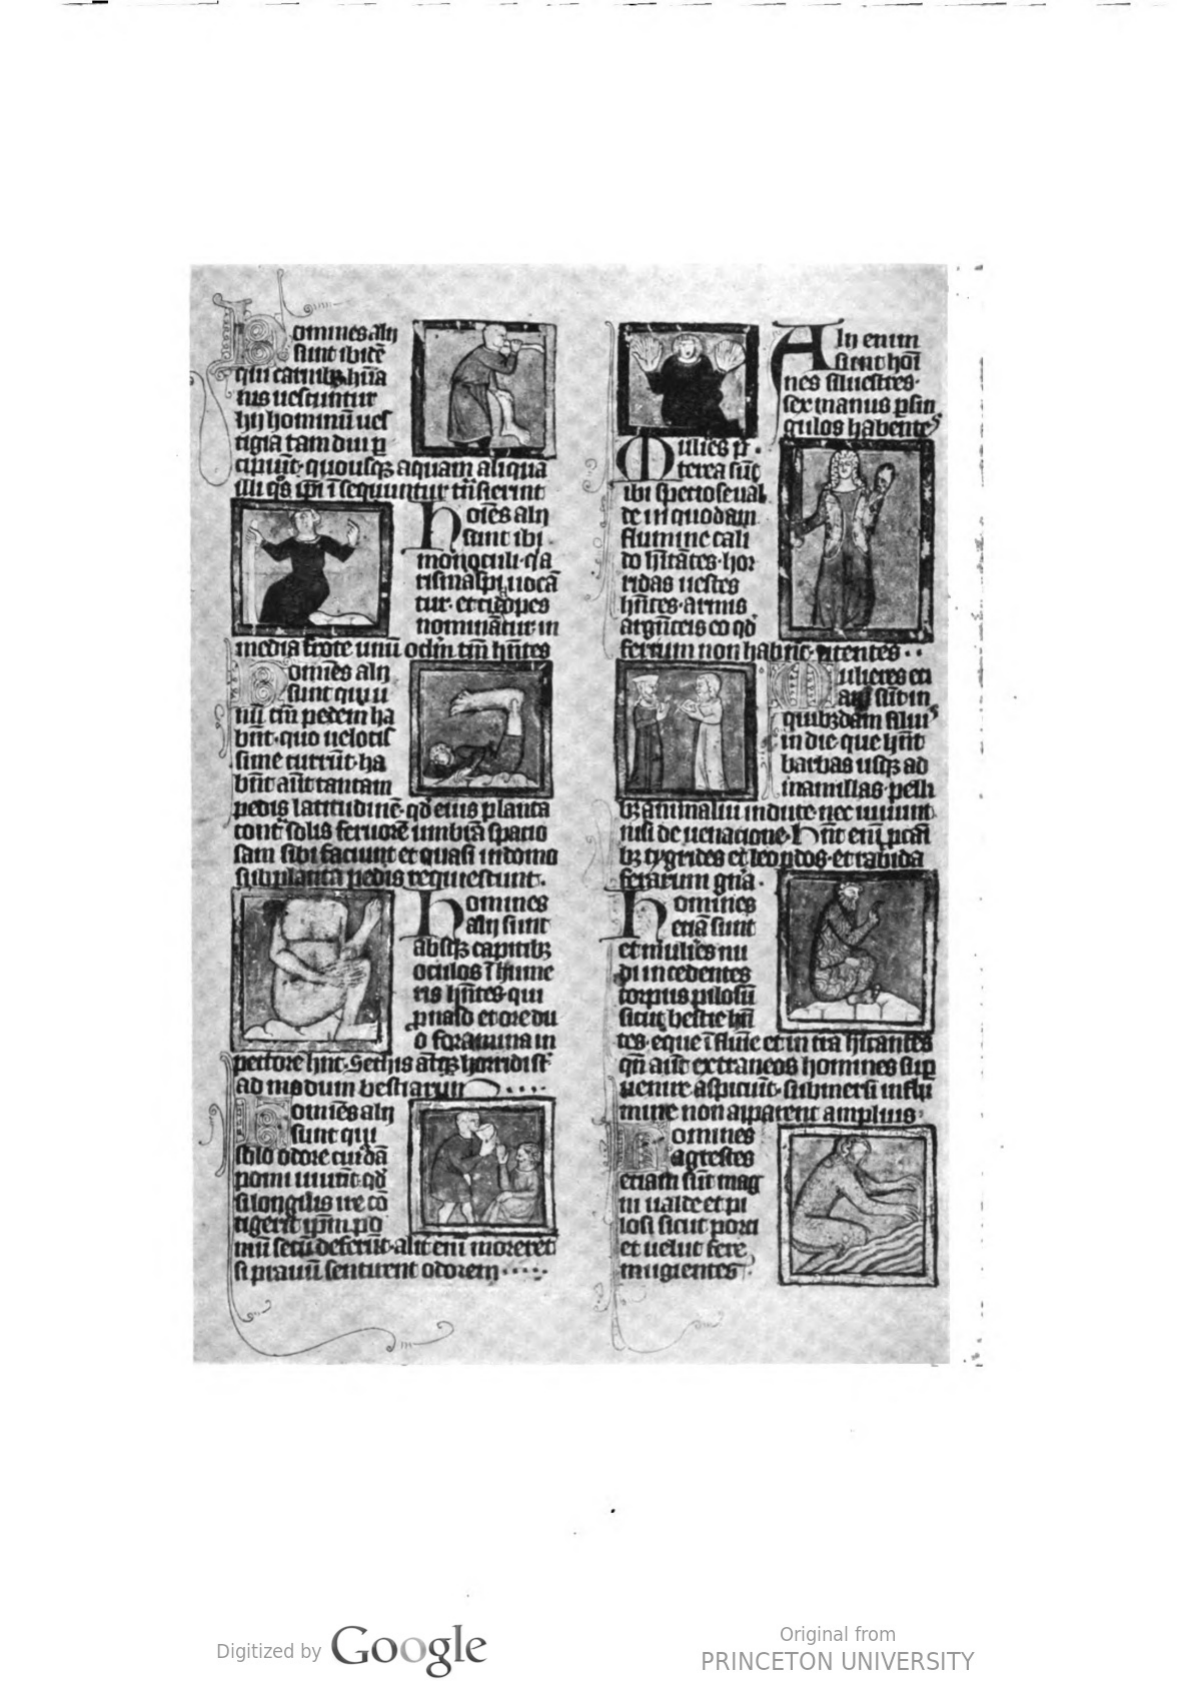 omines alij
sunt ibidē
qui carnibꝫ hūa
nis uescuntur
hij hominū ues
tigia tam diu ꝑ
cipiūt· quousqꝫ aquam aliqua
illi qͦs ip̄i īsequuntur trāsierint
hoīes alij
sunt ibi
monoculi· q̄ a
rismaspi uocā
tur· et ciclopes
nominātur in
media frōte unū oclm tm̄ hn̄tes
omīes alij
sunt qui u
nū tm̄ pedem ha
bn̄t· quo uelocis
sime currūt· ha
bn̄t aūt tantam
pedis latitudinē· qd̄ eius planta
cont̄ solis feruorē umbrā spacio
sam sibi faciunt et quasi in domo
sub planta pedis requiescunt·
homines
alij sunt
absqꝫ capitibꝫ
oculos ī hume
ris hn̄tes· qui
ꝓ naso et ore du
o foramina in
pectore hn̄t· Setis atqꝫ horridi st̄
ad modum bestiarum
omīes alij
sunt qui
solo odore cuiꝰdā
pomi uiuūt· qd̄
si longius ire cō
tigerit ip̄m po
mū secū deferūt· alit̄ eni moreret̄
si prauū sentirent odorem
Alij enim
sunt hoī
nes siluestres·
sex manus ꝑ sin
gulos habentes
Mulieˢ p̄
terea sūt
ibi specios ual
de in quodam
flumine cali
do hītātes· hor
ridas uestes
hn̄tes· armis
argn̄teis eo qd̄
ferrum non habn̄t· utentes··
ulieres eci
am sūt in
quibꝫdam siluis
indie que hn̄t
barbas usqꝫ ad
mamillas· pelli
bꝫ animaliū indute· nec uiuunt
nisi de uenacione· hn̄t eni ꝓ cani
bꝫ tygrides et leoꝑdos· et rabida
ferarum gn̄a·
homines
eciā sunt
et mulieˢ nu
di incedentes
corpus pilosū
sicut bestie hn̄
tes· eque ī flūie et in tra hītantes
qn̄ aūt extraneos homines suꝑ
uenire aspiciūt· submersi in flu
mine non apparent amplius·
omines
agrestes
eciam sūt mag
ni ualde et pi
losi sicut porci
et uelut fere
mugientes
Digitized by Google
Original from
PRINCETON UNIVERSITY